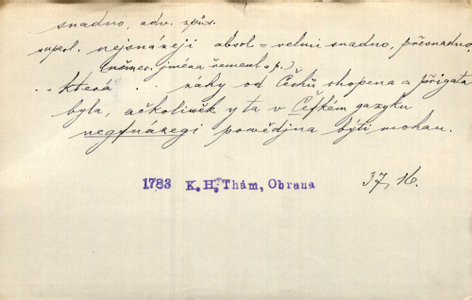 snadno, adv. způs.
superl. nejsnázeji absol = velmi snadno, přesnadno,
(německ. jména řemesl a p.)
.. která .. záhy od Čechů shopena a přigata
byla, ačkoliwěk y ta v Cefkém gazyku
negfnázegi powědjna býti mohau.
1783 K.H.Thám, Obrana 37, 16.